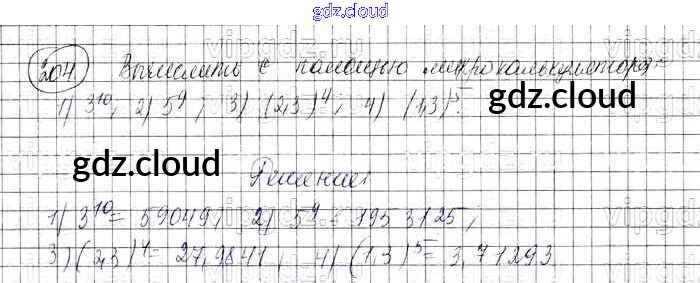 gdz.cloud
204. Вычислить с помощью микрокалькулятора:
1) 3¹⁰; 2) 5⁹; 3) (2,3)⁴; 4) (1,3)⁵.
gdz.cloud gdz.cloud
Решение:
1) 3¹⁰ = 59049; 2) 5⁹ = 1953125;
3) (2,3)⁴ = 27,9841; 4) (1,3)⁵ = 3,71293